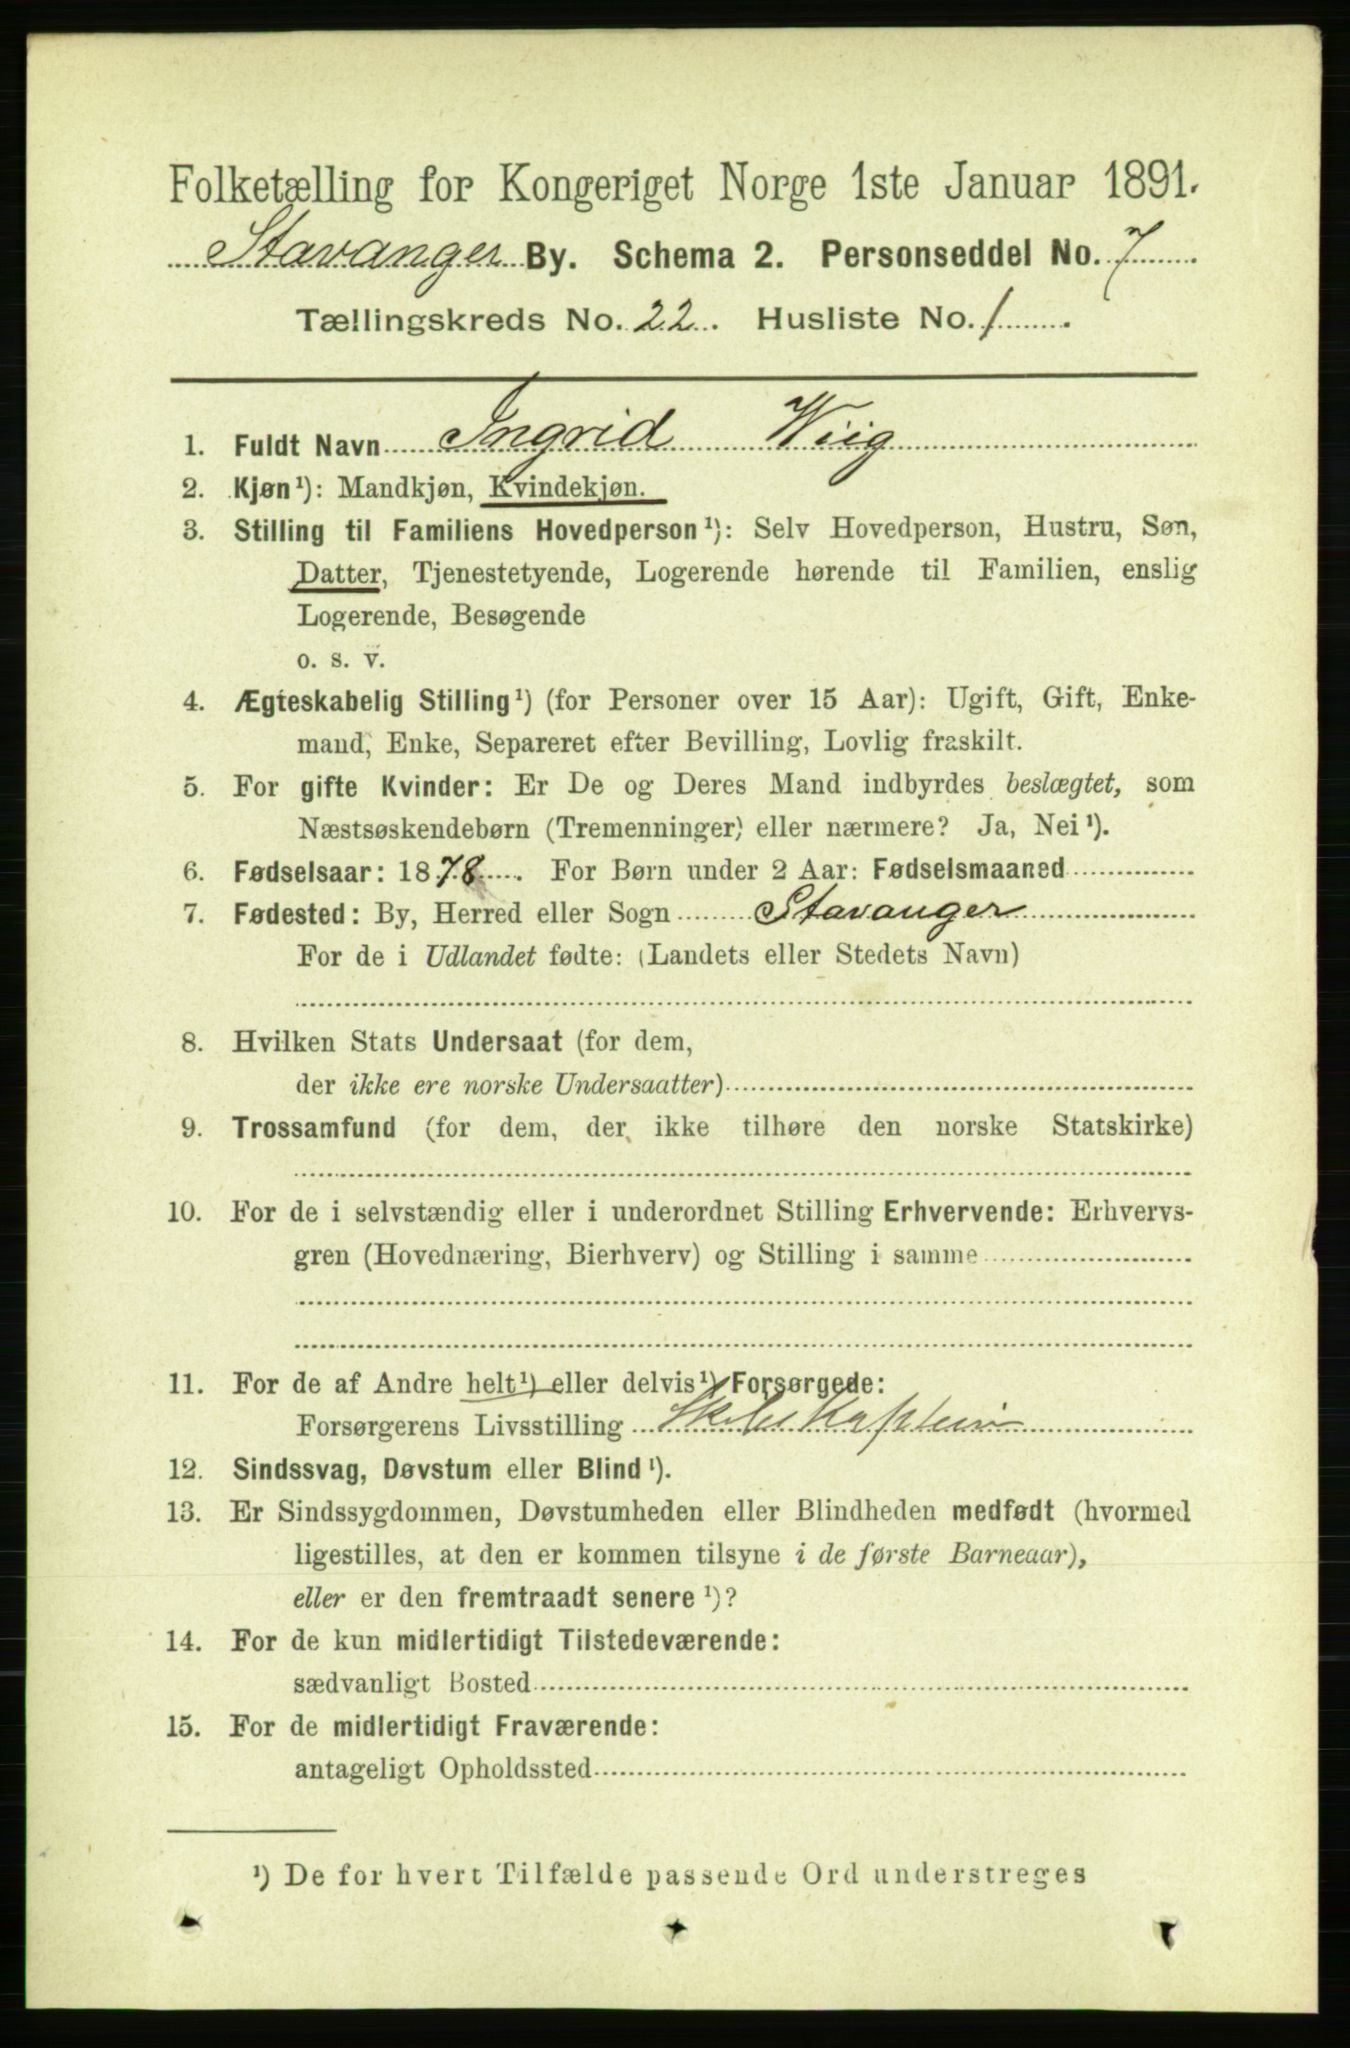 Folketælling for Kongeriget Norge 1ste Januar 1891.
Stavanger By. Schema 2. Personseddel No. 7
Tællingskreds No. 22. Husliste No. 1
1. Fuldt Navn Ingrid Wiig
2. Kjøn¹): Mandkjøn, Kvindekjøn.
3. Stilling til Familiens Hovedperson¹): Selv Hovedperson, Hustru, Søn,
Datter, Tjenestetyende, Logerende hørende til Familien, enslig
Logerende, Besøgende
o. s. v.
4. Ægteskabelig Stilling¹) (for Personer over 15 Aar): Ugift, Gift, Enke-
mand, Enke, Separeret efter Bevilling, Lovlig fraskilt.
5. For gifte Kvinder: Er De og Deres Mand indbyrdes beslægtet, som
Næstsøskendebørn (Tremenninger) eller nærmere? Ja, Nei¹).
6. Fødselsaar: 1878. For Børn under 2 Aar: Fødselsmaaned
7. Fødested: By, Herred eller Sogn Stavanger
For de i Udlandet fødte: (Landets eller Stedets Navn)
8. Hvilken Stats Undersaat (for dem,
der ikke ere norske Undersaatter)
9. Trossamfund (for dem, der ikke tilhøre den norske Statskirke)
10. For de i selvstændig eller i underordnet Stilling Erhvervende: Erhvervs-
gren (Hovednæring, Bierhverv) og Stilling i samme
11. For de af Andre helt¹) eller delvis¹) Forsørgede:
Forsørgerens Livsstilling
12. Sindssvag, Døvstum eller Blind¹).
13. Er Sindssygdommen, Døvstumheden eller Blindheden medfødt (hvormed
ligestilles, at den er kommen tilsyne i de første Barneaar),
eller er den fremtraadt senere¹)?
14. For de kun midlertidigt Tilstedeværende:
sædvanligt Bosted
15. For de midlertidigt Fraværende:
antageligt Opholdssted
¹) De for hvert Tilfælde passende Ord understreges